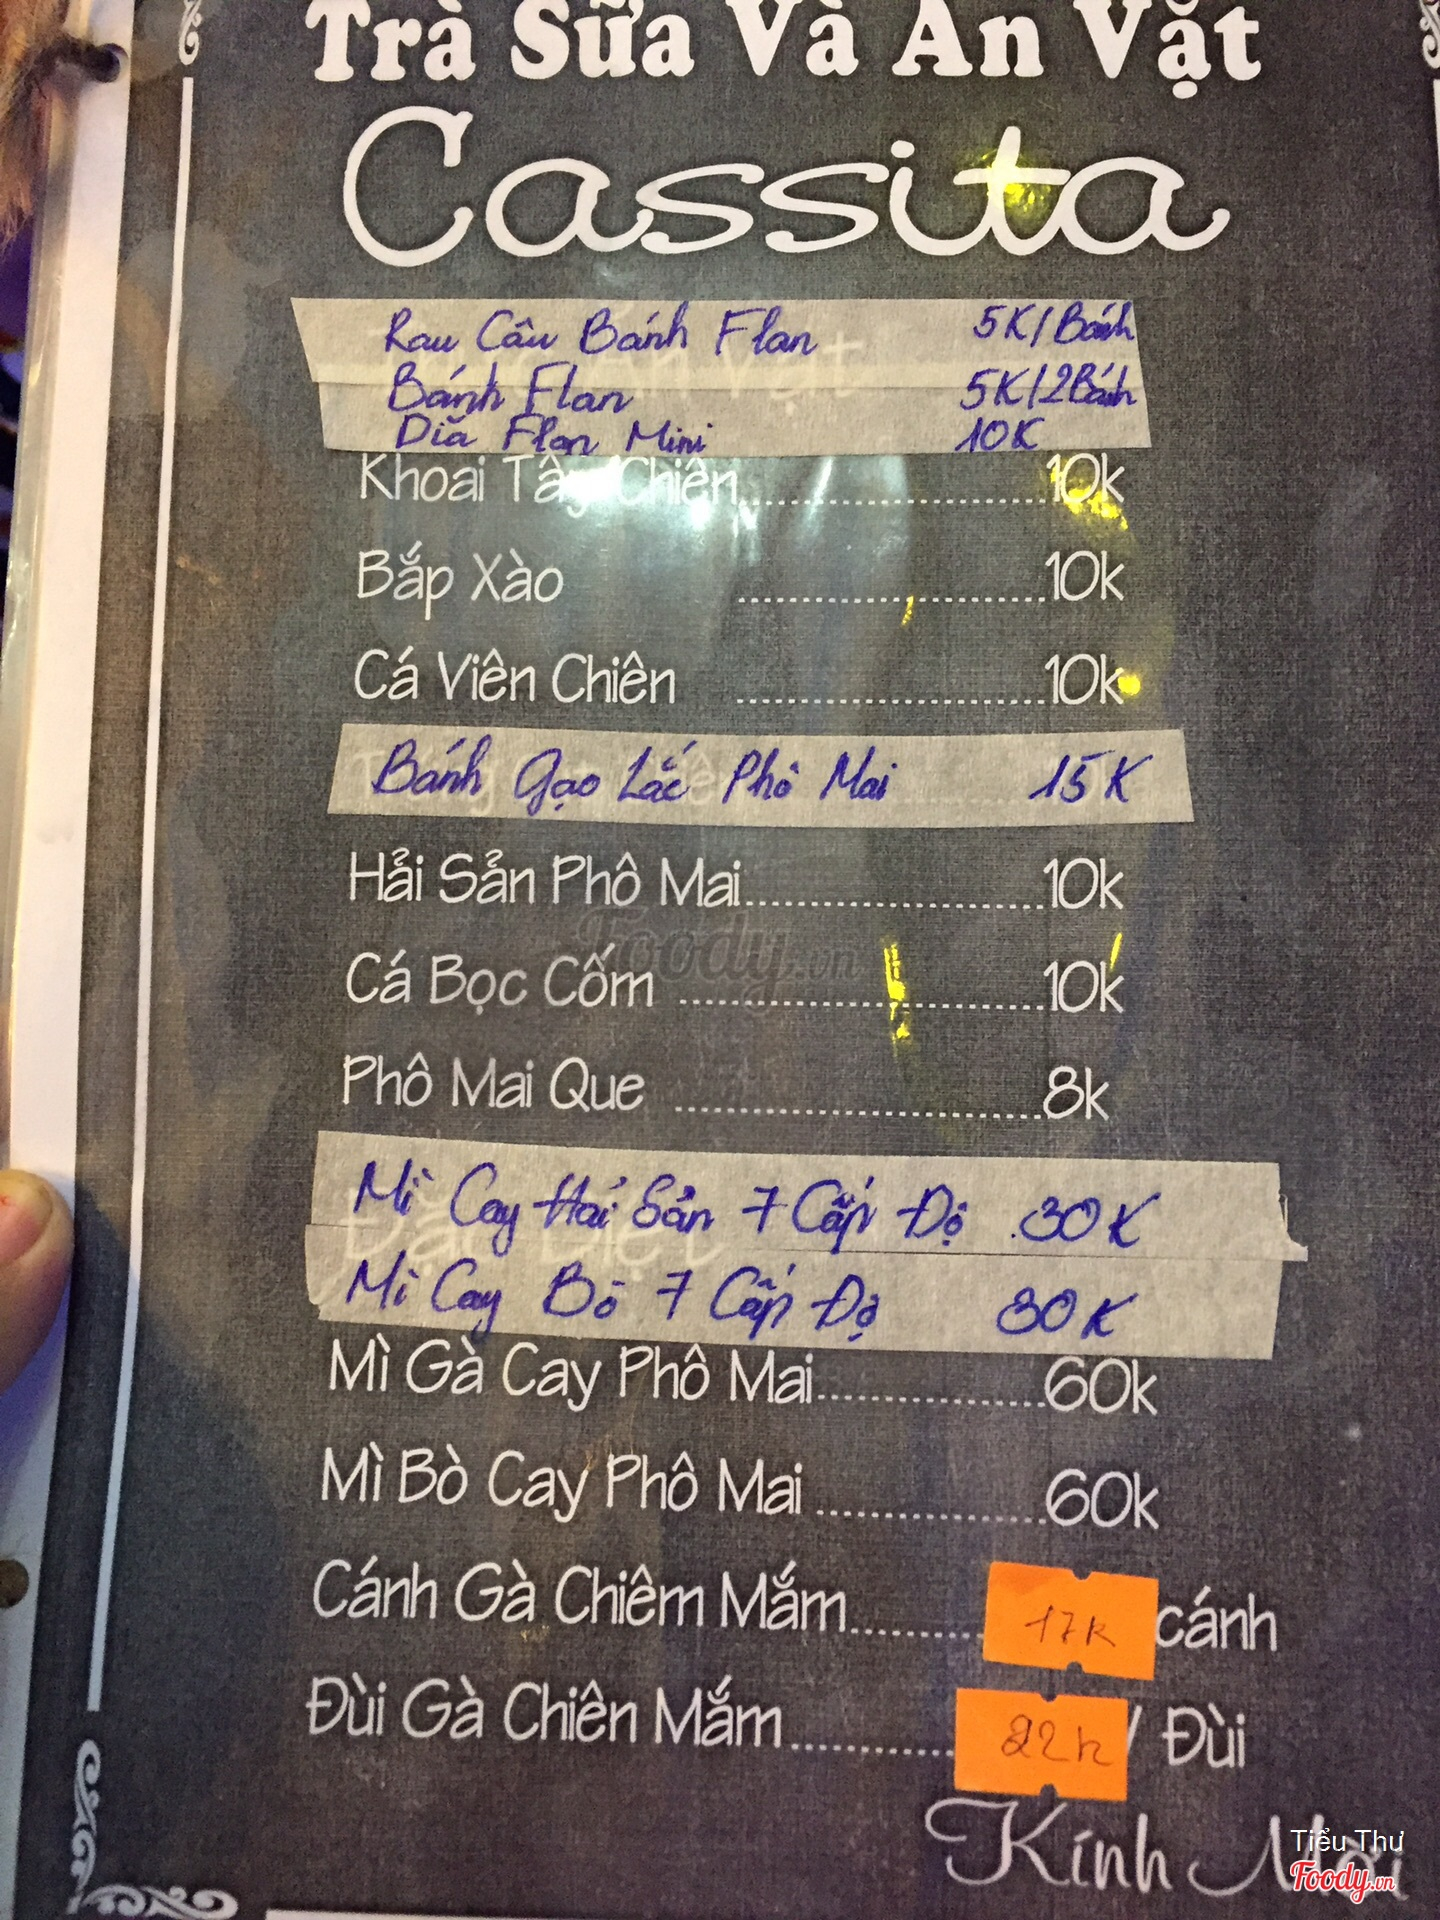 Trà Sữa Và Ăn Vặt
Cassita
Rau Câu Bánh Flan 5K/Bánh
Bánh Flan 5K/2Bánh
Dĩa Flan Mini 10K
Khoai Tây Chiên 10k
Bắp Xào 10k
Cá Viên Chiên 10k
Bánh Gạo Lắc Phô Mai 15K
Hải Sản Phô Mai 10k
Cá Bọc Cốm 10k
Phô Mai Que 8k
Mì Cay Hải Sản 7 Cấp Độ 30K
Mì Cay Bò 7 Cấp Độ 30K
Mì Gà Cay Phô Mai 60k
Mì Bò Cay Phô Mai 60k
Cánh Gà Chiêm Mắm 17k cánh
Đùi Gà Chiên Mắm 22k / Đùi
Kính Mời
Tiểu Thư
Foody.vn
Foody.vn